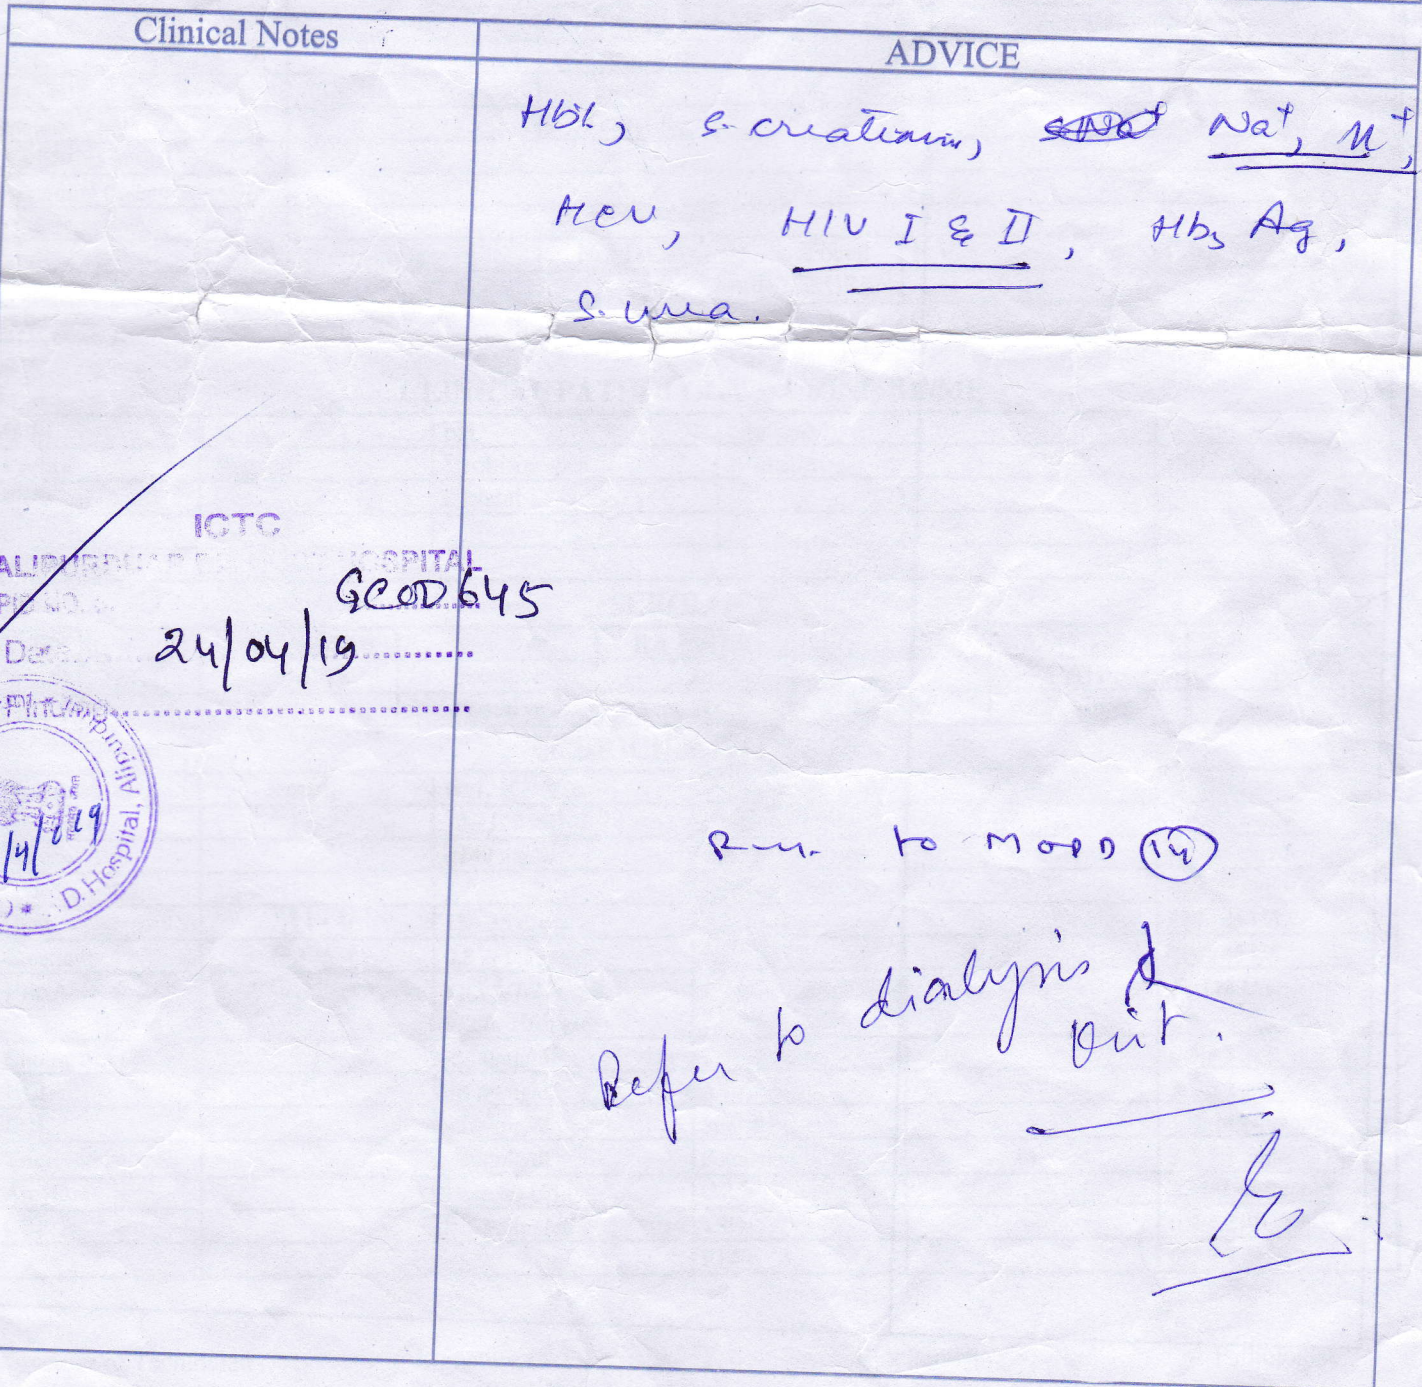 Clinical Notes
ADVICE
Hb%, S. creatinin, Na⁺, K⁺,
HCV, HIV I & II, HbsAg,
S. urea.
ICTC
ALIPURDUAR DISTRICT HOSPITAL
PID NO. GCOD645
Date 24/04/19
Finding
D. Hospital, Alipurduar
/4/19
to MOPD (14)
Refer to dialysis
Unit.